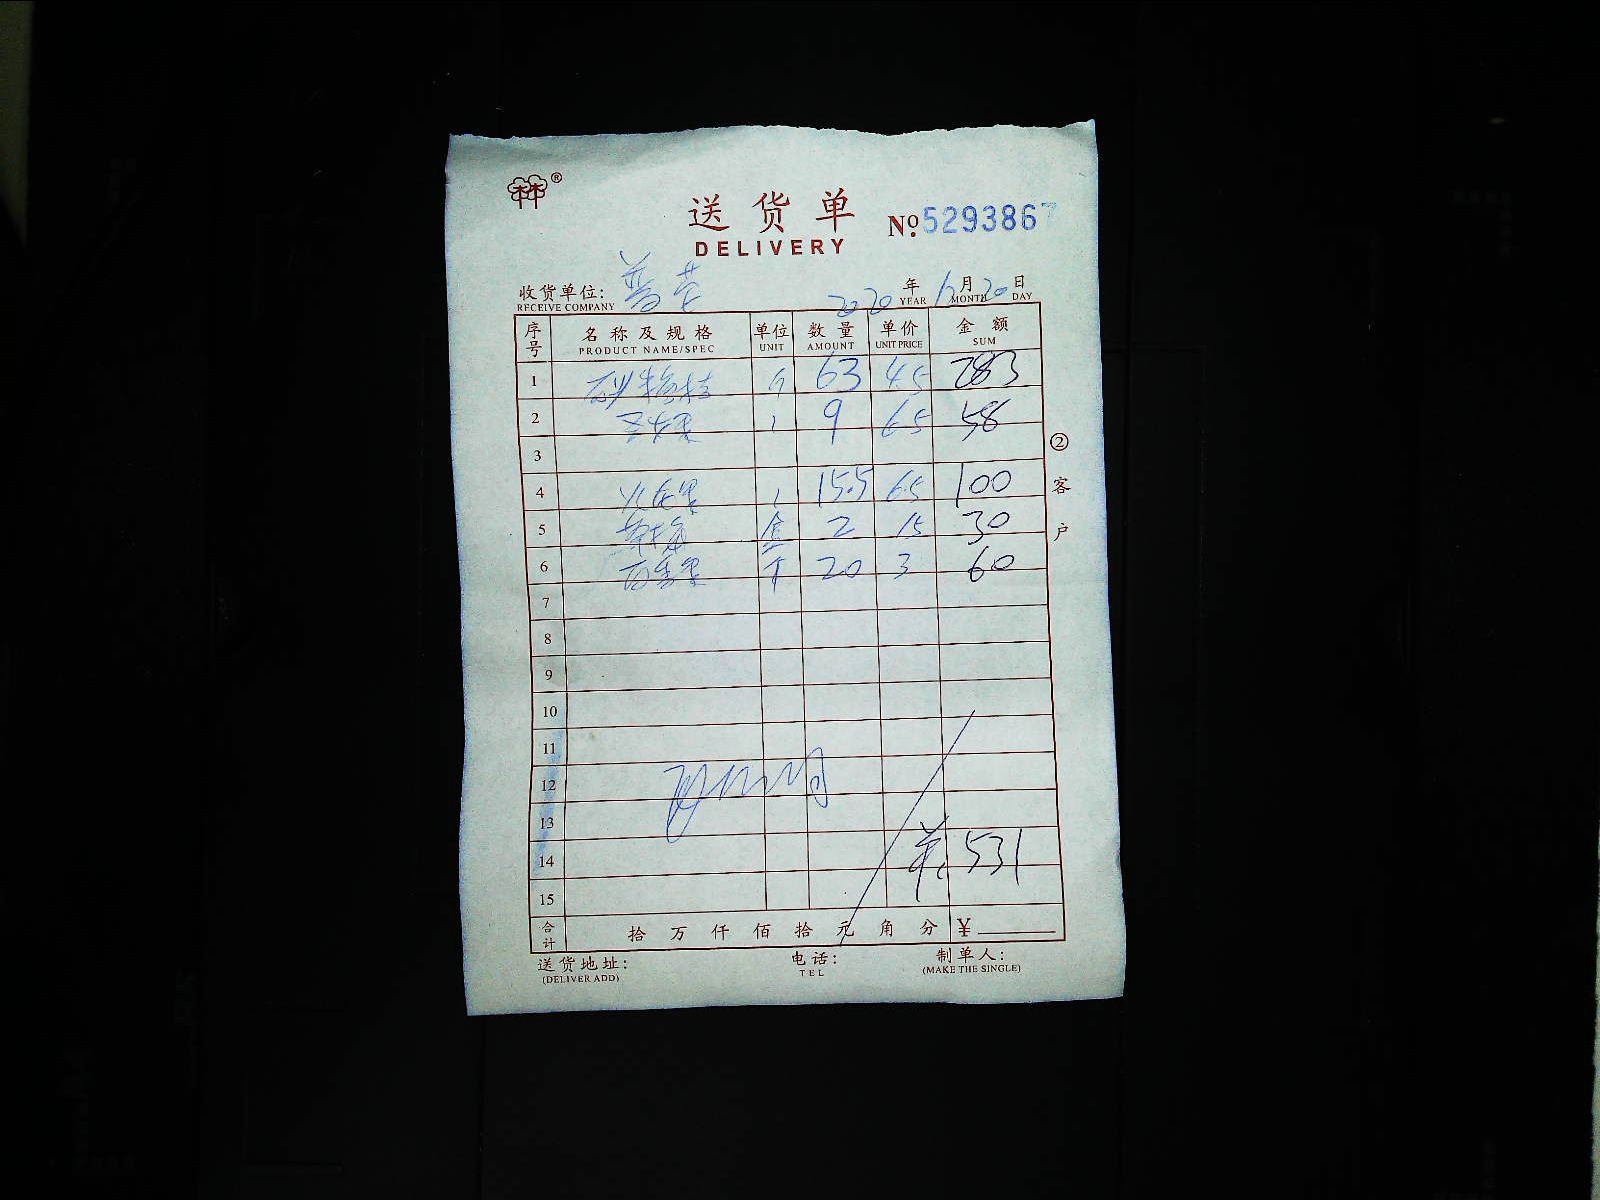 林®
送货单 №5293867
DELIVERY
收货单位: 2020年12月20日
RECEIVE COMPANY YEAR MONTH DAY
序号 名称及规格 单位 数量 单价 金额
PRODUCT NAME/SPEC UNIT AMOUNT UNIT PRICE SUM
1 砂糖桔 斤 63 4.5 283
2 9 6.5 58
3
4 火龙果 15.5 6.5 100
5 盒 2 15 30
6 百香果 个 20 3 60
7
8
9
10
11
12
13
14 共 531
15
合计 拾 万 仟 佰 拾 元 角 分 ¥
送货地址: 电话: 制单人:
(DELIVER ADD) TEL (MAKE THE SINGLE)
②客户